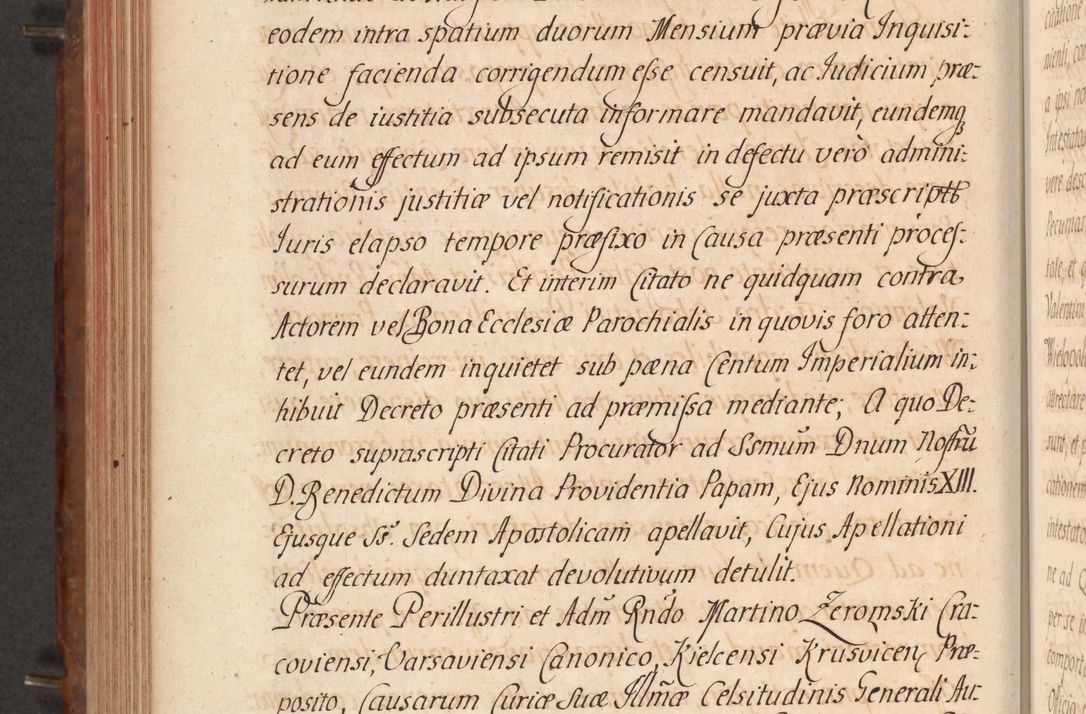 eodem intra spatium duorum Mensium prævia Inquisi:
tione facienda corrigendum eſse censuit, ac Iudicium præ:
sens de iustitia subsecuta informare mandavit, eundemq3
ad eum effectum ad ipsum remisit in defectu verò admini:
strationis justitiæ vel notificationis se juxta præscriptũ
Iuris elapso tempore præfixo in Causa præsenti proceſ:
surum declaravit. Et interim Citato ne quidquam contra
Actorem vel Bona Ecclesiæ Parochialis in quovis foro atten:
tet, vel eundem inquietet sub pæna Centum Imperialium in:
hibuit Decreto præsenti ad præmiſsa mediante; A quo De:
creto suprascripti Citati Procurator ad Ssmum̃ Dnum Noſtrũ
D. Benedictum Divina Providentia Papam, Ejus Nominis XIII.
Ejusque Ss. Sedem Apostolicam apellavit, Cujus Apellationi
ad effectum duntaxat devolutivum detulit.
Præsente Perillustri et Adm̃ Rñdo Martino Zeromski Cra:
coviensi, Varsaviensi Canonico, Kielcensi Krusvicen, Præ:
posito, Causarum Curiæ Suæ Illm̃æ Celsitudinis Generali Au: